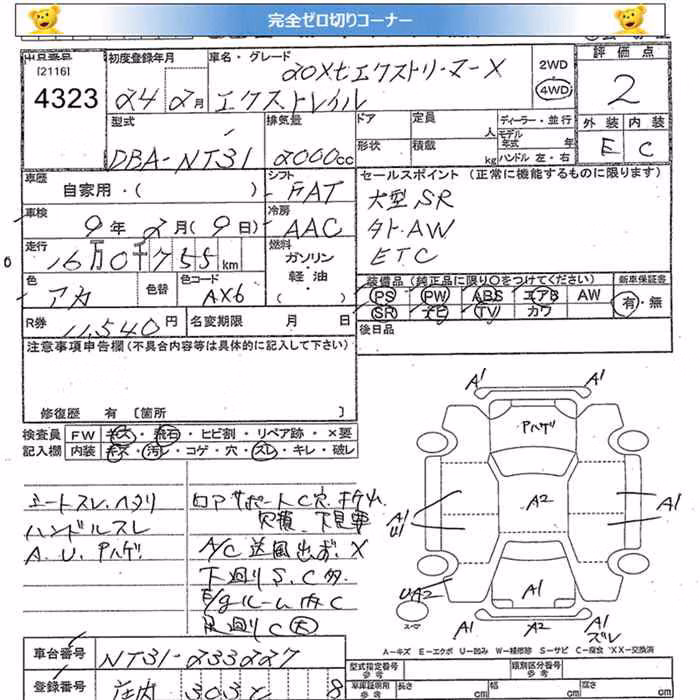 完全ゼロ切りコーナー
出品番号 初度登録年月 車名・グレード 評価点
[2116]
4323 24 2月 20Xtエクストリーマーx 2WD 4WD 2
エクストレイル
型式 排気量 ドア 定員 人 ディーラー・並行 外装 内装
DBA-NT31 2000cc 形状 積載 kg モデル年式 年 E C
ハンドル 左・右
車歴 シフト セールスポイント (正常に機能するものに限ります)
自家用・( ) FAT 大型SR
車検 冷房
9年 2月 (9日) AAC タト.AW
走行 燃料 ETC
16万0千755km ガソリン
軽油・
色 色替 色コード 装備品 (純正品に限り○をつけてください) 新車保証書
アカ AX6 PS PW ABS エアB AW 有・無
R券 11,540円 名変期限 月 日 SR ナビ TV カワ
後日品
注意事項申告欄(不具合内容等は具体的に記入して下さい)
修復歴 有 [箇所 ]
検査員 FW キズ・飛石・ヒビ割・リペア跡・×要
記入欄 内装 キズ・汚レ・コゲ・穴・スレ・キレ・破レ
シートスレ.ヘタリ ロアサポートC穴.
ハンドルスレ 欠損
A.U.Pハゲ A/C 送風出ず X
下廻りS.C多
E/gルーム内C
足廻りC大
A1 A1
Pハゲ
A1 A2 A1
U1
UA2 A1
スペア
A1 A2 A1
ズレ
A-キズ E-エクボ U-凹み W-補修跡 S-サビ C-腐食 XX-交換済
車台番号 NT31-233227
登録番号 庄内 303 8
型式指定番号 参考 類別区分番号 参考
車庫証明用 参考 長さ cm 幅 cm 高さ cm